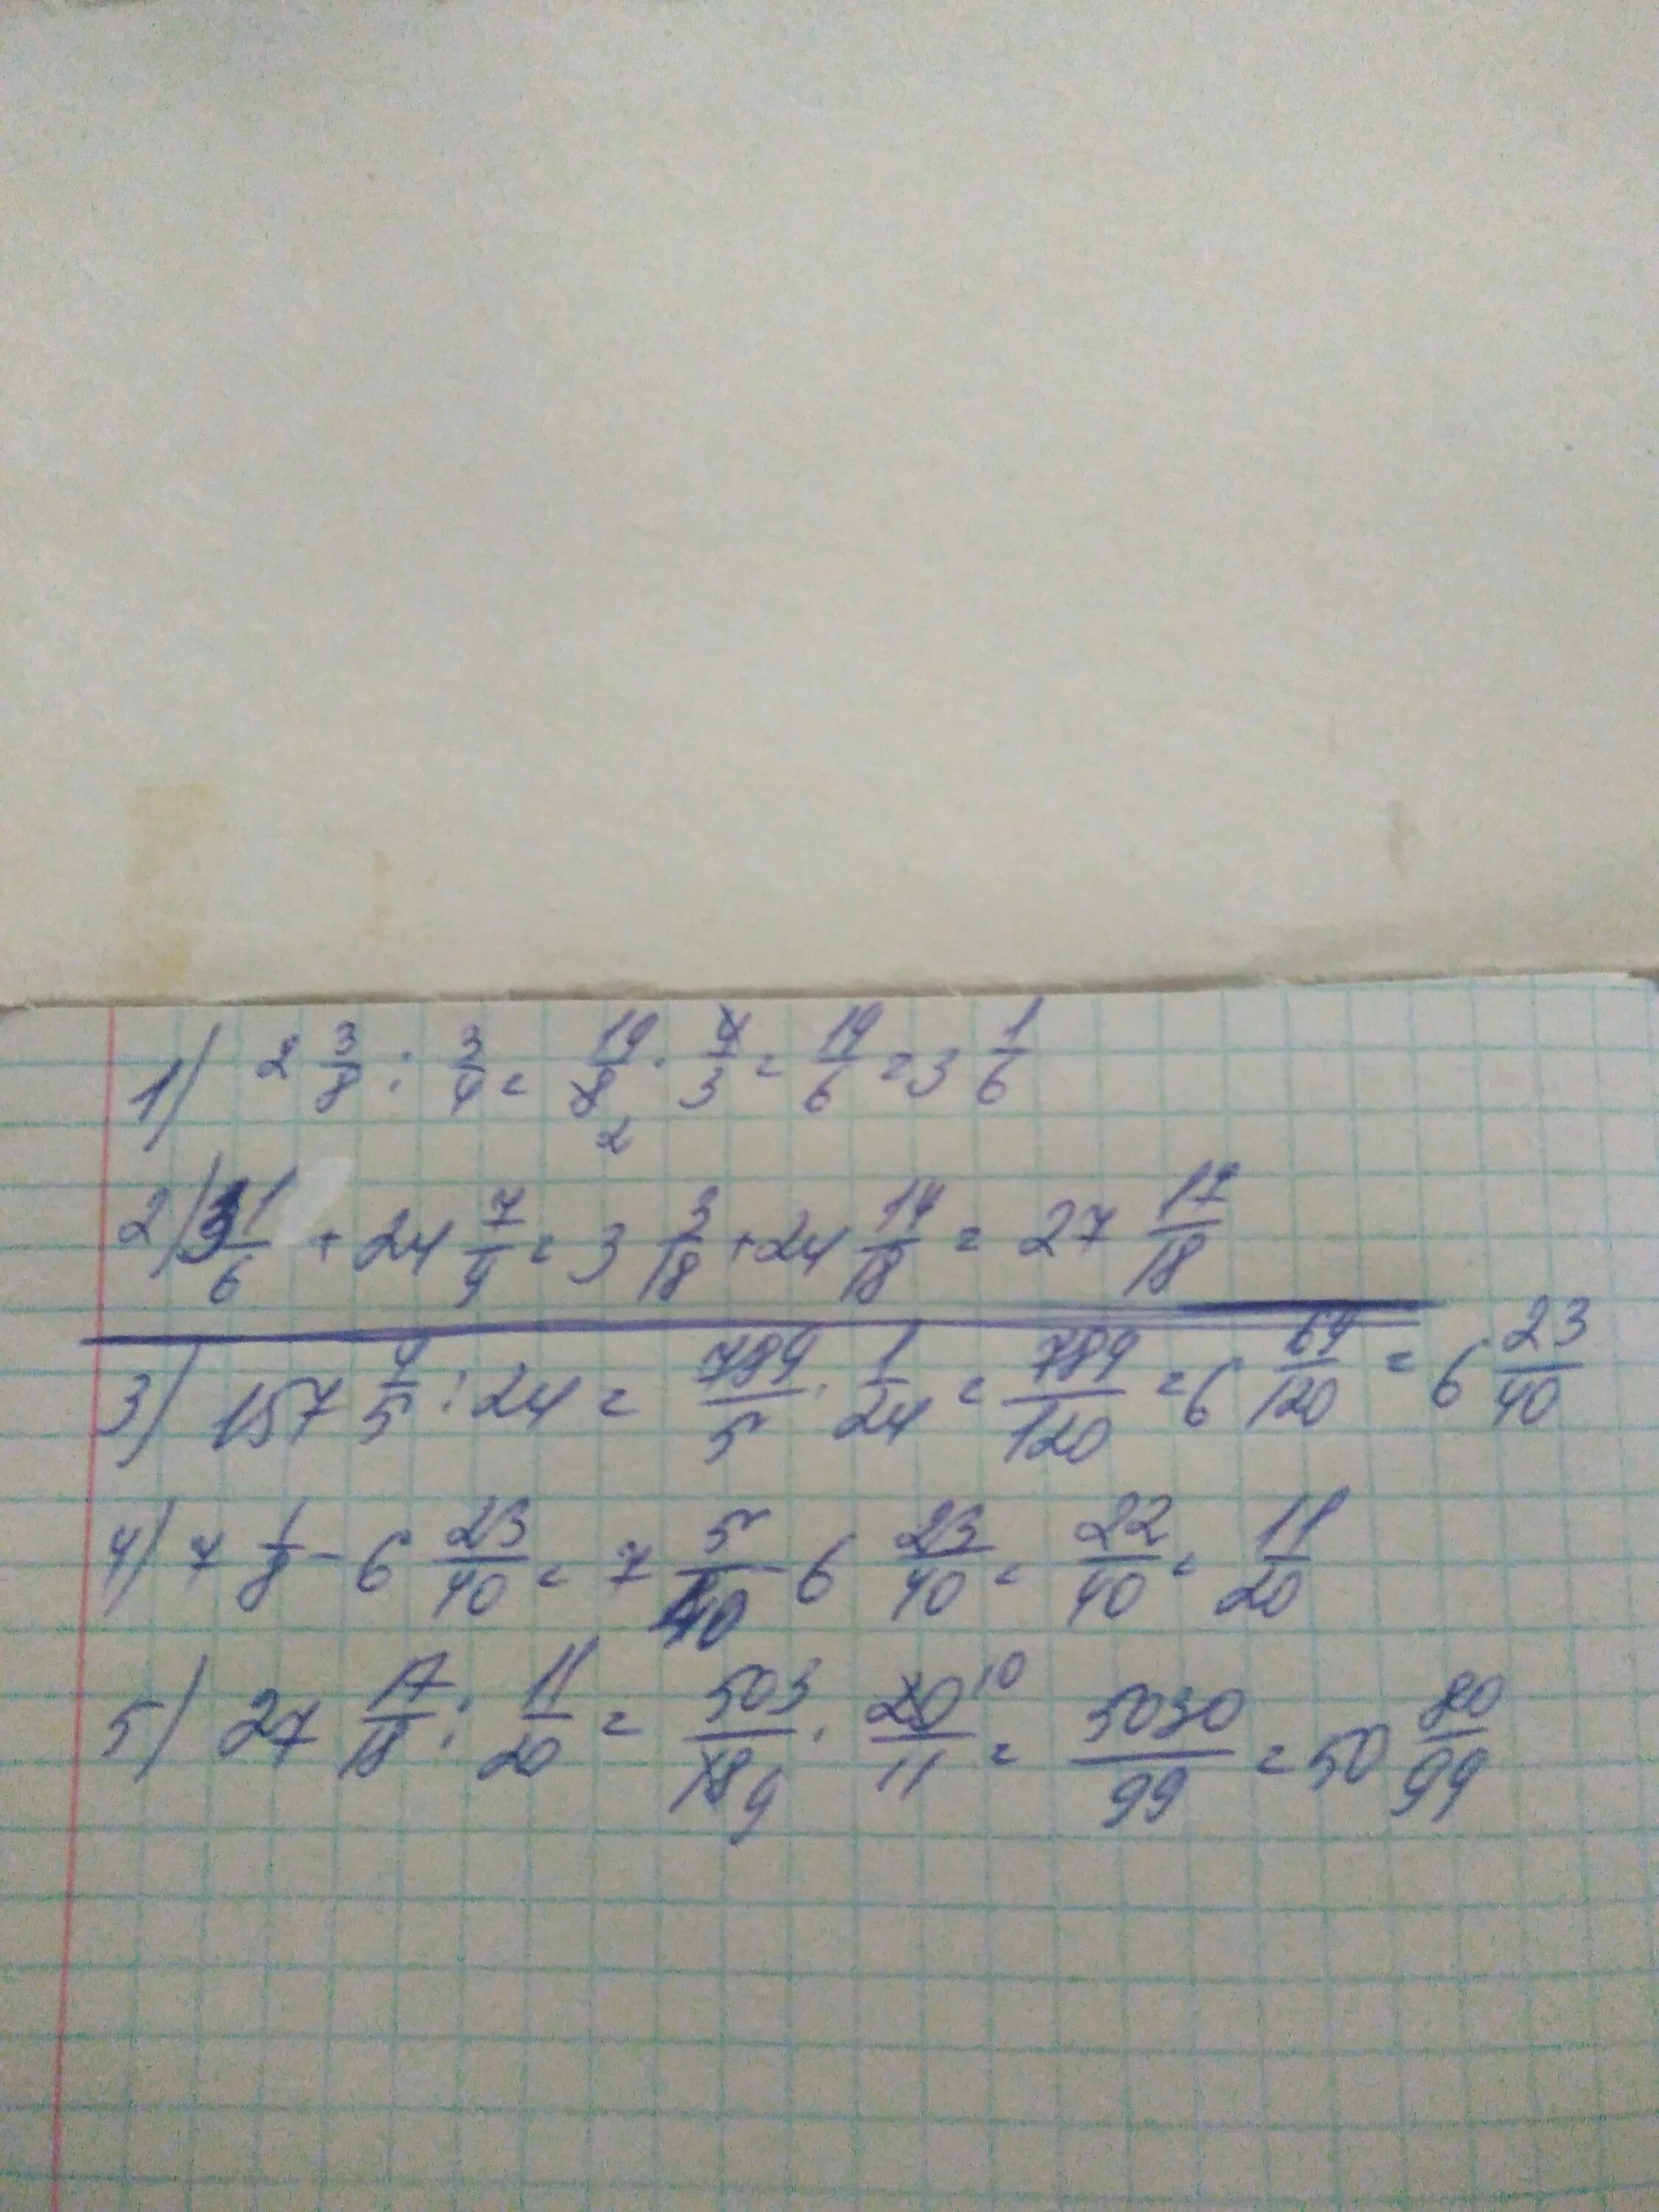 1) 2 3/8 : 3/4 = 19/8 2 · 4/3 = 19/6 = 3 1/6
2) 3 1/6 + 24 7/9 = 3 3/18 + 24 14/18 = 27 17/18
3) 157 4/5 : 24 = 789/5 · 1/24 = 789/120 = 6 69/120 = 6 23/40
4) 7 1/8 - 6 23/40 = 7 5/40 - 6 23/40 = 22/40 = 11/20
5) 27 17/18 : 11/20 = 503/18 9 · 20 10/11 = 5030/99 = 50 80/99